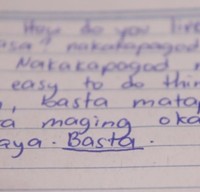 How do you live
nakakapagod
Nakakapagod
easy to do thin
, basta mata
a maging oka
aya. Basta.